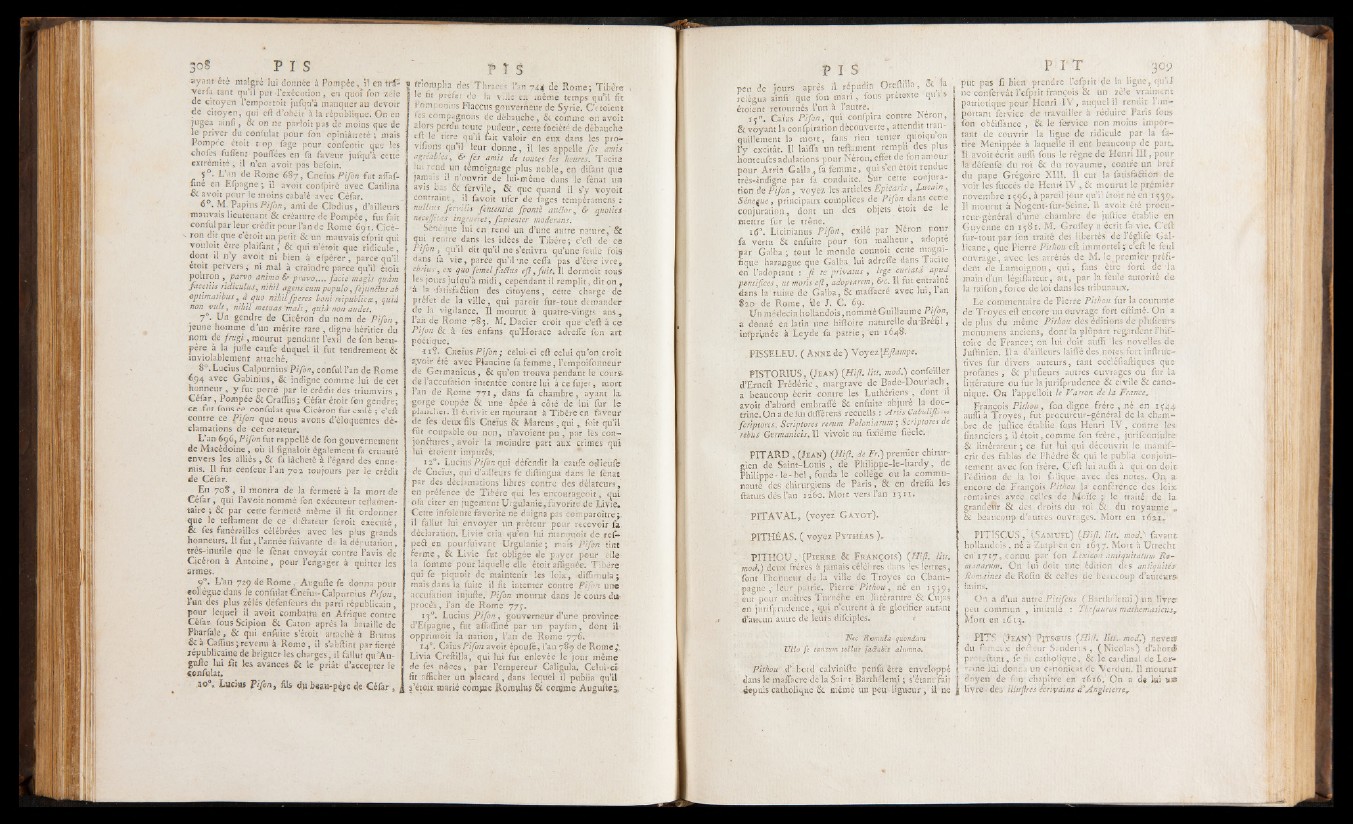 308 P I S
ayant été malgré lui donnée à Pompée, il en tra-
versa tant qu'il put l'exécution, en quoi son zèle
de citoyen l'emportoit jusqu'à manquer au devoir
de citoyen, qui est d'obéir à la république. On en
jugea ainsi, & on ne parloit pas de moins que de
le priver du consulat pour son opiniâtreté; mais
Pompée étoit trop sage pour consentir que les
choses fussent poussées en sa faveur jusqu'à cette
extrémité, il n'en avoit pas besoin.
5°. L'an de Rome 687, Cneïus Pison fut assas-
siné en Espagne; il avoit conspiré avec Catilina
& avoit pour le moins cabalé avec César.
6°. M. Papius Pison, ami de Clodius, d'ailleurs
mauvais lieutenant & créature de Pompée, fut fait
consul par leur crédit pour l'an de Rome 691. Cicé-
ron dit que c'étoit un petit & un mauvais esprit qui
vouloit être plaisant, & qui n'étoit que ridicule,
dont il n'y avoit ni bien à espérer, parce qu'il
étoit pervers; ni mal à craindre parce qu'il étoit
poltron, parvo animo & pravo.... facie magis quàm
facetiis ridiculus, nihil agens cum populo, sejunctus ab
optimatibus, à quo nihil speres boni reipublicæ, quia
non vult, nihil metuas mali, quià non audet.
7°. Un gendre de Cicéron du nom de Pison,
jeune homme d'un mérite rare, digne héritier du
nom de frugi, mourut pendant l'exil de son beau-
père à la juste cause duquel il fut tendrement &
inviolablement attaché.
8°. Lucius Calpurnius Pison, consul l'an de Rome
694 avec Gabinius, & indigne comme lui de cet
honneur, y fut porté par le crédit des triumvirs,
César, Pompée & Crassus; César étoit son gendre;
ce fut sous ce consulat que Cicéron fut exilé; c'est
contre ce Pison que nous avons d'éloquentes dé-
clamations de cet orateur.
L'an 696, Pison fut rappellé de son gouvernement
de Macédoine, où il signaloit également sa cruauté
envers les alliés, & sa lâcheté à l'égard des enne-
mis. Il fut censeur l'an 702 toujours par le crédit
de César.
En 708, il montra de la fermeté à la mort de
César, qui l'avoit nommé son exécuteur testamen-
taire; & par cette fermeté même il fit ordonner
que le testament de ce dictateur seroit exécuté,
& ses funérailles célébrées avec les plus grands
honneurs. Il fut, l'année suivante de la députation,
très-inutile que le sénat envoyât contre l'avis de
Cicéron à Antoine, pour l'engager à quitter les
armes.
9°. L'an 729 de Rome, Auguste se donna pour
collègue dans le consulat Cneïus-Calpurnius Pison,
l'un des plus zélés défenseurs du parti républicain,
pour lequel il avoit combattu en Afrique contre
César sous Scipion & Caton après la bataille de
Pharsale, & qui ensuite s'étoit attaché à Brutus
& à Cassius; revenu à Rome, il s'abstint par fierté
républicaine de briguer les charges, il fallut qu'Au-
guste lui fît les avances & le priât d'accepter le
consulat.
10°. Lucius Pison, fils du beau-père de César,
P I S
triompha des Thraces l'an 744 de Rome; Tibère
le fit préfet de la ville en même temps qu'il fit
Pomponius Flaccus gouverneur de Syrie. C'étoient
ses compagnons de débauche, & comme on avoit
alors perdu toute pudeur, cette société de débauche
est le titre qu'il fait valoir en eux dans les pro-
visions qu'il leur donne, il les appelle ses amis
agréables, & ses amis de toutes les heures. Tacite
lui rend un témoignage plus noble, en disant que
jamais il n'ouvrit de lui-même dans le sénat un
avis bas & servile, & que quand il s'y voyoit
contraint, il savoit user de sages tempéramens:
nullius servilis sententiæ sponte auctor, & quoties
necessitas ingrueret, sapienter moderans.
Sénèque lui en rend un d'une autre nature, &
qui rentre dans les idées de Tibère; c'est de ce
Pison, qu'il dit qu'il ne s'enivra qu'une seule fois
dans sa vie, parce qu'il ne cessa pas d'être ivre,
ebrius, ex quo semel factus est, fuit. Il dormoit tous
les jours jusqu'à midi, cependant il remplit, dit-on,
à la satisfaction des citoyens, cette charge de
préfet de la ville, qui paroît sur-tout demander
de la vigilance. Il mourut à quatre-vingts ans,
l'an de Rome 783. M. Dacier croit que c'est à ce
Pison & à ses enfans qu'Horace adresse son art
poétique.
11°. Cneïus Pison; celui-ci est celui qu'on croit
avoir été avec Plancine sa femme, l'empoisonneur
de Germanicus, & qu'on trouva pendant le cours
de l'accusation intentée contre lui à ce sujet, mort
l'an de Rome 771, dans sa chambre, ayant la
gorge coupée & une épée à côté de lui sur le
plancher. Il écrivit en mourant à Tibère en faveur
de ses deux fils Cneïus & Marcus, qui, soit qu'il
fût coupable ou non, n'avoient pu, par les con-
jonctures, avoir la moindre part aux crimes qui
lui étoient imputés.
12°. Lucius Pison qui défendit la cause odieuse
de Cneïus, qui d'ailleurs se distingua dans le sénat
par des déclamations libres contre des délateurs,
en présence de Tibère qui les encourageoit, qui
osa citer en jugement Urgulanie, favorite de Livie.
Cette insolente favorite ne daigna pas comparoître;
il fallut lui envoyer un préteur pour recevoir sa
déclaration. Livie cria qu'on lui manquoit de res-
pect en poursuivant Urgulanie; mais Pison tint
ferme, & Livie fut obligée de payer pour elle
la somme pour laquelle elle étoit assignée. Tibère
qui se piquoit de maintenir les loix, dissimula;
mais dans la suite il fit intenter contre Pison une
accusation injuste. Pison mourut dans le cours du
procès, l'an de Rome 775.
13°. Lucius Pison, gouverneur d'une province
d'Espagne, fut assassiné par un paysan, dont il
opprimoit la nation, l'an de Rome 776.
14°. Caïus Pison avoit épousé, l'an 789 de Rome,
Livia Orestilla, qui lui fut enlevée le jour même
de ses nôces, par l'empereur Caligula. Celui-ci
fit afficher un placard, dans lequel il publia qu'il
s'étoit marié comme Romulus & comme Auguste;
P I S
peu de jours après il répudia Orestilla, & la
relégua ainsi que son mari, sous prétexte qu'ils
étoient retournés l'un à l'autre.
15°. Caïus Pison, qui conspira contre Néron,
& voyant la conspiration découverte, attendit tran-
quillement la mort, sans rien tenter quoiqu'on
l'y excitât. Il laissa un testament rempli des plus
honteuses adulations pour Néron, effet de son amour
pour Arria Galla, sa femme, qui s'en étoit rendue
très-indigne par sa conduite. Sur cette conjura-
tion de Pison, voyez les articles Epicaris, Lucain,
Sénèque, principaux complices de Pison dans cette
conjuration, dont un des objets étoit de le
mettre sur le trône.
16°. Licinianus Pison, exilé par Néron pour
sa vertu & ensuite pour son malheur, adopté
par Galba; tout le monde connoît cette magni-
fique harangue que Galba lui adresse dans Tacite
en l'adoptant: si te privatus, lege curiatâ apud
pontifices, ut moris est, adoptarem, &c. Il fut entraîné
dans la ruine de Galba, & massacré avec lui, l'an
820 de Rome, de J. C. 69.
Un médecin hollandois, nommé Guillaume Pison,
a donné en latin une histoire naturelle du Brésil,
imprimée à Leyde sa patrie, en 1648.
PISSELEU, ( ANNE de ) Voyez Estampe.
PISTORIUS, (JEAN) (Hist. litt. mod.) conseiller
d'Ernest Frédéric, margrave de Bade-Dourlach,
a beaucoup écrit contre les Luthériens, dont il
avoit d'abord embrassé & ensuite abjuré la doc-
trine. On a de lui différens recueils: Artis Cabalisticæ
scriptores, Scriptores rerum Polonicarum; Scriptores de
rebus Germanicis. Il vivoit au sixième siècle.
PITARD, (JEAN) (Hist. de Fr.) premier chirur-
gien de Saint-Louis, de Philippe-le-hardy, de
Philippe-le-bel, fonda le collège ou la commu-
nauté des chirurgiens de Paris, & en dressa les
statuts dès l'an 1260. Mort vers l'an 1311.
PITAVAL, (voyez GAYOT).
PITHÉAS. ( voyez PYTHEAS ).
PITHOU, (PIERRE & FRANÇOIS) (Hist. litt.
mod.) deux frères à jamais célèbres dans les lettres,
font l'honneur de la ville de Troyes en Cham-
pagne, leur patrie. Pierre Pithou, né en 1539,
eut pour maîtres Turnèbe en littérature & Cujas
en jurisprudence, qui n'eurent à se glorifier autant
d'aucun autre de leurs disciples.
Nec Romula quondam
Ullo se tantùm tellus jactabit alumno.
Pithou d'abord calviniste pensa être enveloppé
dans le massacre de la Saint-Barthélemi; s'étant fait
depuis catholique & même un peu ligueur, il ne
P I T 309
put pas si bien prendre l'esprit de la ligue, qu'il
ne conservât l'esprit françois & un zèle vraiment
patriotique pour Henri IV, auquel il rendit l'im-
portant service de travailler à réduire Paris sous
son obéissance, & le service non moins impor-
tant de couvrir la ligue de ridicule par la sa-
tire Menippée à laquelle il eut beaucoup de part.
Il avoit écrit aussi sous le règne de Henri III, pour
la défense du roi & du royaume, contre un bref
du pape Grégoire XIII. Il eut la satisfaction de
voir les succès de Henri IV, & mourut le premier
novembre 1596, à pareil jour qu'il étoit né en 1539.
Il mourut à Nogent-sur-Seine. Il avoit été procu-
reur-général d'une chambre de justice établie en
Guyenne en 1581. M. Grosley a écrit sa vie. C'est
sur-tout par son traité des libertés de l'église Gal-
licane, que Pierre Pithou est immortel; c'est le seul
ouvrage, avec les arrêtés de M. le premier prési-
dent de Lamoignon, qui, sans être sorti de la
main d'un législateur, ait, par la seule autorité de
la raison, force de loi dans les tribunaux.
Le commentaire de Pierre Pithou sur la coutume
de Troyes est encore un ouvrage fort estimé. On a
de plus du même Pithou des éditions de plusieurs
monumens anciens, dont la plûpart regardent l'his-
toire de France; on lui doit aussi les novelles de
Justinien. Il a d'ailleurs laissé des notes fort instruc-
tives sur divers auteurs, tant ecclésiastiques que
profanes, & plusieurs autres ouvrages ou sur la
littérature ou sur la jurisprudence & civile & cano-
nique. On l'appelloit le Varron de la France.
François Pithou, son digne frère, né en 1544
aussi à Troyes, fut procureur-général de la cham-
bre de justice établie sous Henri IV, contre les
financiers; il étoit, comme son frère, jurisconsulte
& littérateur; ce fut lui qui découvrit le manus-
crit des fables de Phèdre & qui le publia conjoin-
tement avec son frère. C'est lui aussi à qui on doit
l'édition de la loi salique avec des notes. On a
encore de François Pithou la conférence des loix
romaines avec celles de Moïse; le traité de la
grandeur & des droits du roi & du royaume,
& beaucoup d'autres ouvrages. Mort en 1621.
PITISCUS, (SAMUEL) (Hist. litt. mod.) savant
hollandois, né à Zutphen en 1637. Mort à Utrecht
en 1717, connu par son Lexicon antiquitatum Ro-
manarum. On lui doit une édition des antiquités
Romaines de Rosin & celles de beaucoup d'auteurs
latins.
On a d'un autre Pitiscus (Barthélemi) un livre
peu commun, intitulé: Thesaurus mathematicus,
Mort en 1613.
PITS (JEAN) PITSŒUS (Hist. litt. mod.) neveu
du fameux docteur Sanderus, (Nicolas) d'abord
protestant, se fit catholique, & le cardinal de Lor-
raine lui donna un canonicat de Verdun. Il mourut
doyen de son chapitre en 1616. On a de lui un
livre des illustres écrivains d'Angleterre.